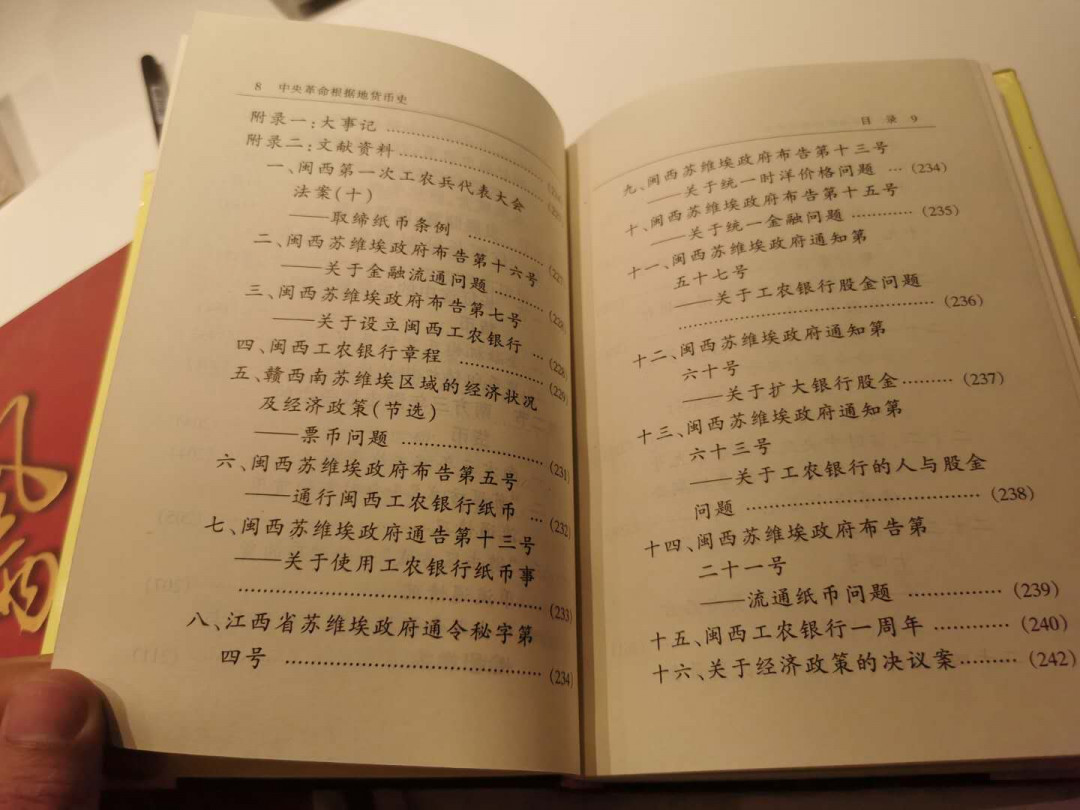 8 中央革命根据地货币史
附录一:大事记 ……………………
附录二:文献资料 ……………………
一、闽西第一次工农兵代表大会
法案(十)
——取缔纸币条例 …………… (227)
二、闽西苏维埃政府布告第十六号
——关于金融流通问题 …………
三、闽西苏维埃政府布告第七号
——关于设立闽西工农银行 … (228)
四、闽西工农银行章程 …………… (229)
五、赣西南苏维埃区域的经济状况
及经济政策(节选)
——票币问题 ………………… (231)
六、闽西苏维埃政府布告第五号
——通行闽西工农银行纸币 … (232)
七、闽西苏维埃政府通告第十三号
——关于使用工农银行纸币事
…………………………………… (233)
八、江西省苏维埃政府通令秘字第
四号 ……………………………… (234)
目 录 9
九、闽西苏维埃政府布告第十三号
——关于统一时洋价格问题 … (234)
十、闽西苏维埃政府布告第十五号
——关于统一金融问题 ………… (235)
十一、闽西苏维埃政府通知第
五十七号
——关于工农银行股金问题
…………………………………… (236)
十二、闽西苏维埃政府通知第
六十号
——关于扩大银行股金 ……… (237)
十三、闽西苏维埃政府通知第
六十三号
——关于工农银行的人与股金
问题 …………………………… (238)
十四、闽西苏维埃政府布告第
二十一号
——流通纸币问题 …………… (239)
十五、闽西工农银行一周年 ………… (240)
十六、关于经济政策的决议案 ……… (242)